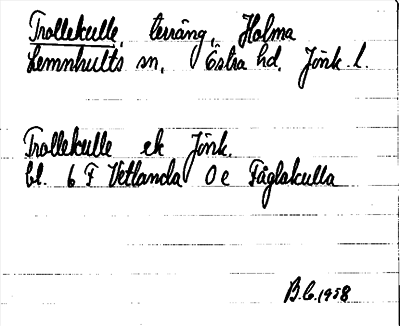 Trollekulle, terräng, Holma
Lemnhults sn, Östra hd, Jönk. l.
Trollekulle ek Jönk.
bl. 6 F Vetlanda 0 e Fåglakulla
B.C. 1958